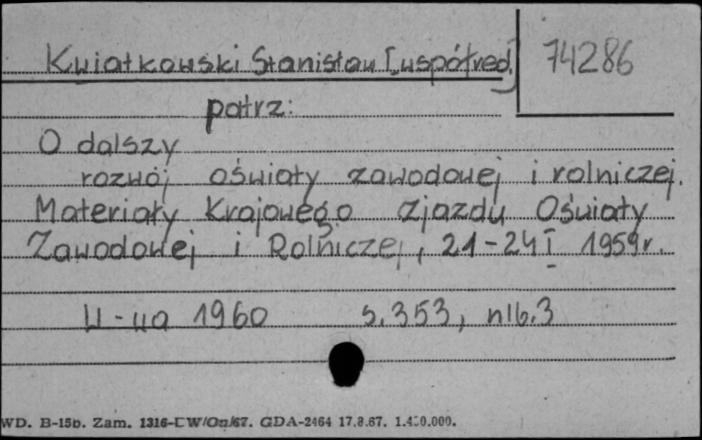 Kwiatkowski Stanisław [współred.]
74286
patrz:
O dalszy
rozwój oświaty zawodowej i rolniczej.
Materiały Krajowego Zjazdu Oświaty
Zawodowej i Rolniczej, 21-24 I 1959r.
W-wa 1960 s.353, nlb.3
WD. B-15b. Zam. 1316-DW/On/67. GDA-2464 17.8.67. 1.400.000.